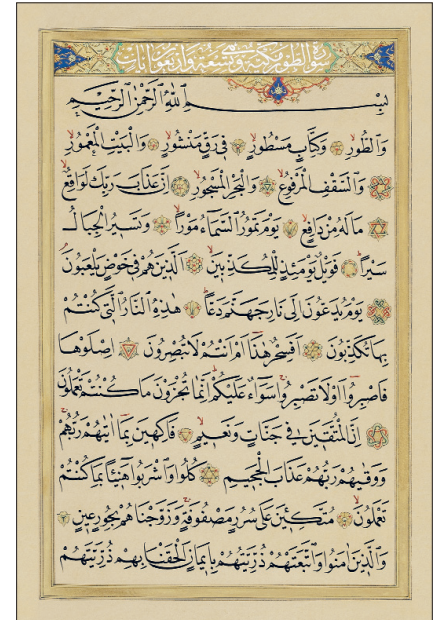 سورة الطور مكية وهي تسع واربعون ايات
بِسْمِ اللّٰهِ الرَّحْمٰنِ الرَّحِيمِ
وَالطُّورِ وَكِتَابٍ مَسْطُورٍ فِي رَقٍّ مَنْشُورٍ وَالْبَيْتِ الْمَعْمُورِ
وَالسَّقْفِ الْمَرْفُوعِ وَالْبَحْرِ الْمَسْجُورِ اِنَّ عَذَابَ رَبِّكَ لَوَاقِعٌ
مَا لَهُ مِنْ دَافِعٍ يَوْمَ تَمُورُ السَّمَاءُ مَوْرًا وَتَسِيرُ الْجِبَالُ
سَيْرًا فَوَيْلٌ يَوْمَئِذٍ لِلْمُكَذِّبِينَ اَلَّذِينَ هُمْ فِي خَوْضٍ يَلْعَبُونَ
يَوْمَ يُدَعُّونَ اِلٰى نَارِ جَهَنَّمَ دَعًّا هٰذِهِ النَّارُ الَّتِي كُنْتُمْ
بِهَا تُكَذِّبُونَ اَفَسِحْرٌ هٰذَا اَمْ اَنْتُمْ لَا تُبْصِرُونَ اِصْلَوْهَا
فَاصْبِرُوا اَوْ لَا تَصْبِرُوا سَوَاءٌ عَلَيْكُمْ اِنَّمَا تُجْزَوْنَ مَا كُنْتُمْ تَعْمَلُونَ
اِنَّ الْمُتَّقِينَ فِي جَنَّاتٍ وَنَعِيمٍ فَاكِهِينَ بِمَا اٰتٰيهُمْ رَبُّهُمْ
وَوَقٰيهُمْ رَبُّهُمْ عَذَابَ الْجَحِيمِ كُلُوا وَاشْرَبُوا هَنِيئًا بِمَا كُنْتُمْ
تَعْمَلُونَ مُتَّكِئِينَ عَلٰى سُرُرٍ مَصْفُوفَةٍ وَزَوَّجْنَاهُمْ بِحُورٍ عِينٍ
وَالَّذِينَ اٰمَنُوا وَاتَّبَعَتْهُمْ ذُرِّيَّتُهُمْ بِاِيمَانٍ اَلْحَقْنَا بِهِمْ ذُرِّيَّتَهُمْ